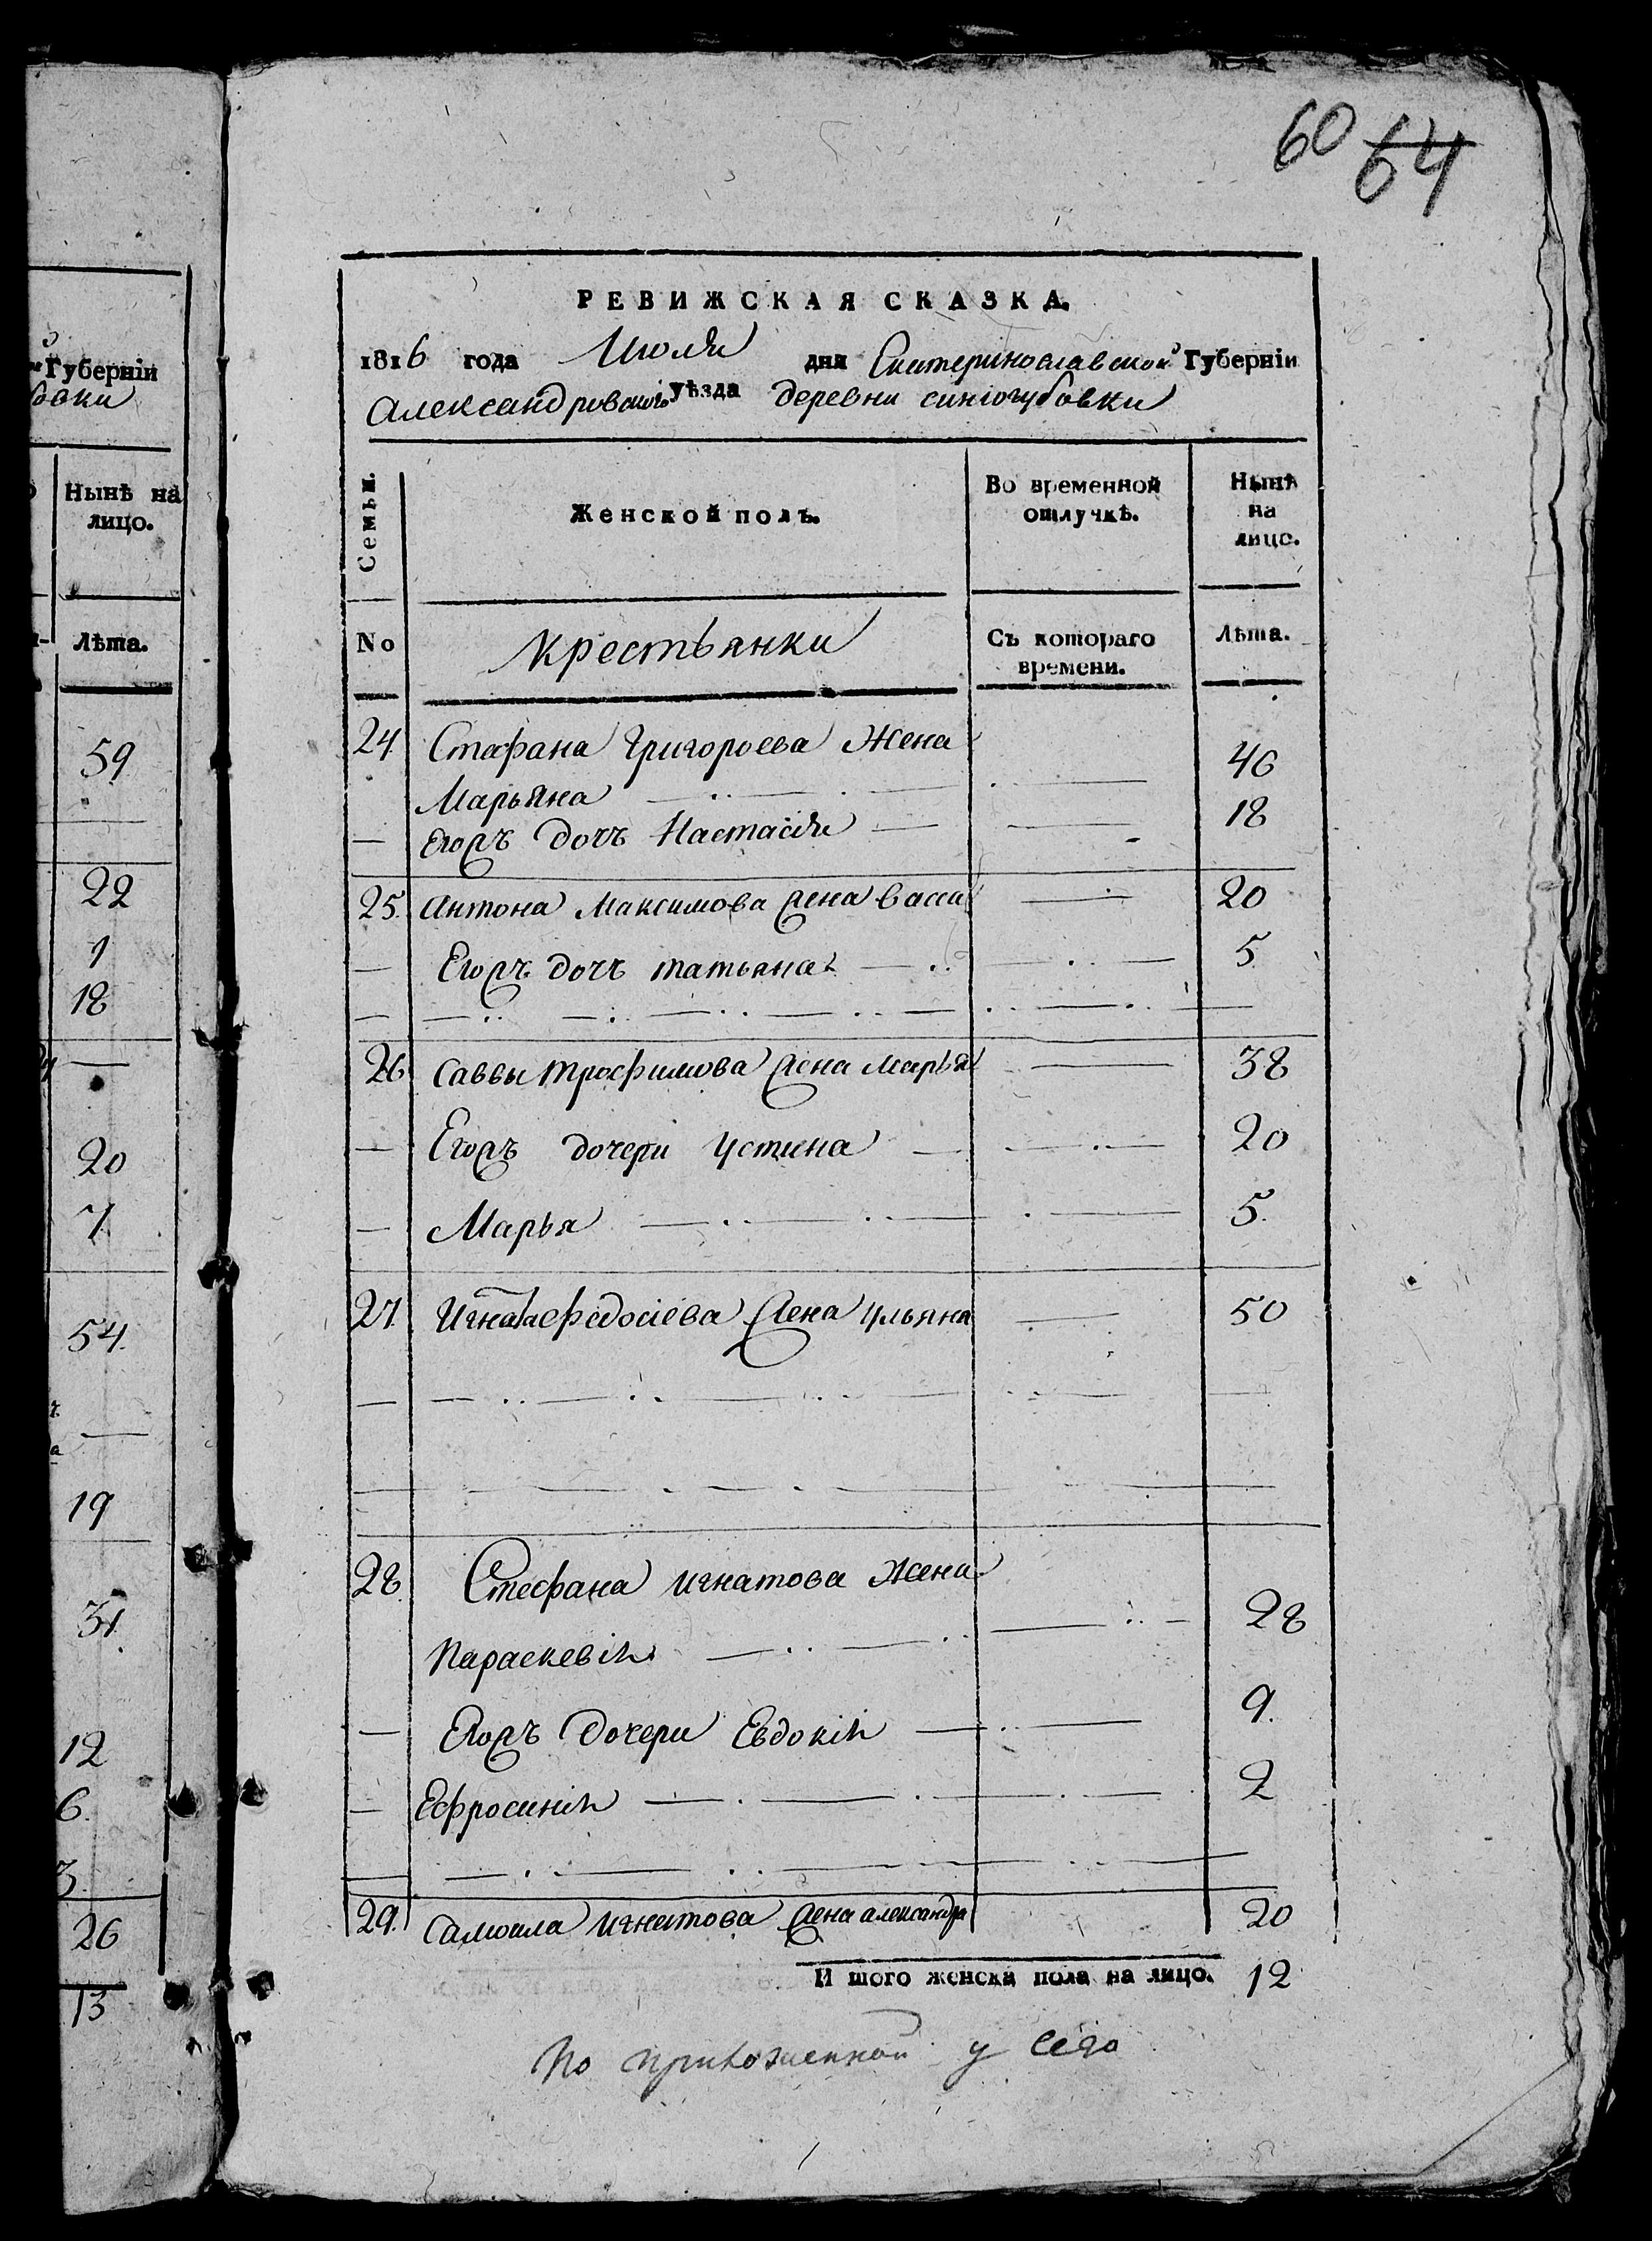 60 64
Губерніи
овки
Нынѣ на
лицо.
Лѣта.
59
22
1
18
20
7
54
19
31
12
6
3
26
13
РЕВИЖСКАЯ СКАЗКА.
1816 года Июля дня Екатеринославской Губерніи
Александровского уѣзда деревни синюгубовки
Семьи. Женской полъ. Во временной отлучкѣ. Нынѣ на лицо.
No Крестьянки Съ котораго времени. Лѣта.
24 Стефана Григорьева Жена
Марьяна 46
— Еіожъ дочъ Настасія — 18
25. антона Максимова жена васса 20
— Еіожъ дочъ татьяна — 5
26 саввы трофимова жена марья 38
— Егожъ дочери устина — 20
— Марья — 5.
27 Игната федосіева жена ульяна 50
28. Стефана игнатова жена
Параскевія — 28
— Егожъ дочери Евдокія — 9.
— Ефросинія — 2
29. Самоила игнатова жена александра 20
И того женска пола на лицо. 12
По приложенной у сего